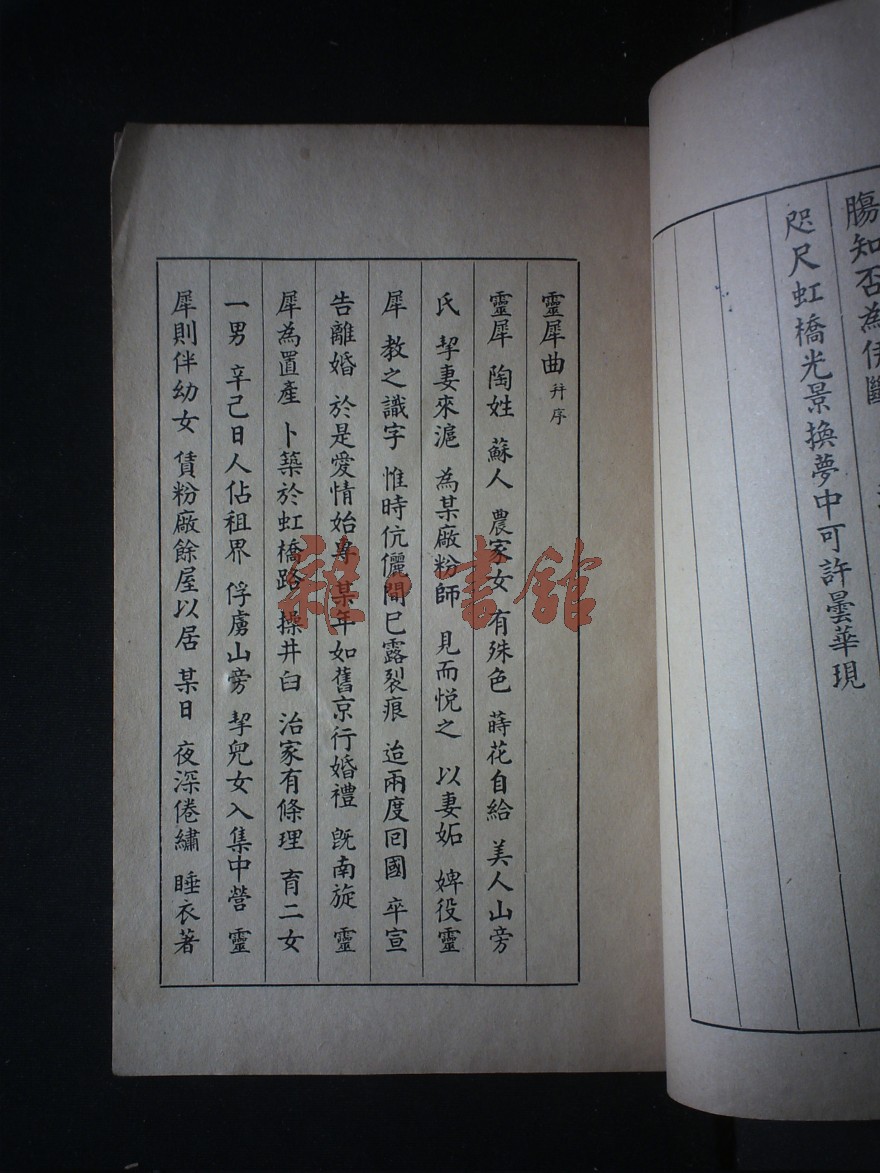 腸知否為伊斷
咫尺虹橋光景換夢中可許曇華現
靈犀曲 幷序
靈犀 陶姓 蘇人 農家女 有殊色 蒔花自給 美人山旁
氏 挈妻來滬 為某廠粉師 見而悅之 以妻妬 婢役靈
犀 教之識字 惟時伉儷間已露裂痕 迨兩度回國 卒宣
告離婚 於是愛情始專 某年如舊京行婚禮 旣南旋 靈
犀為置產 卜築於虹橋路 操井臼 治家有條理 育二女
一男 辛巳日人佔租界 俘虜山旁 挈兒女入集中營 靈
犀則伴幼女 賃粉廠餘屋以居 某日 夜深倦繡 睡衣著
雜·書館